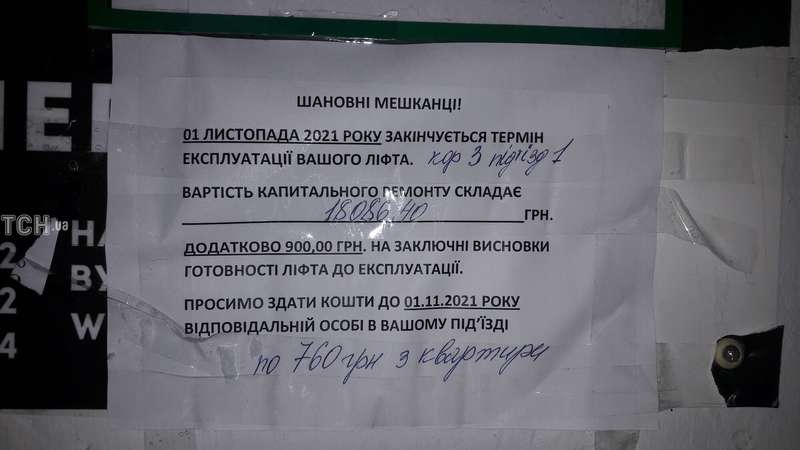 ШАНОВНІ МЕШКАНЦІ!
01 ЛИСТОПАДА 2021 РОКУ ЗАКІНЧУЄТЬСЯ ТЕРМІН
ЕКСПЛУАТАЦІЇ ВАШОГО ЛІФТА. кор 3 під'їзд 1
ВАРТІСТЬ КАПИТАЛЬНОГО РЕМОНТУ СКЛАДАЄ
18086,40 ГРН.
ДОДАТКОВО 900,00 ГРН. НА ЗАКЛЮЧНІ ВИСНОВКИ
ГОТОВНОСТІ ЛІФТА ДО ЕКСПЛУАТАЦІЇ.
ПРОСИМО ЗДАТИ КОШТИ ДО 01.11.2021 РОКУ
ВІДПОВІДАЛЬНІЙ ОСОБІ В ВАШОМУ ПІД'ЇЗДІ
по 760 грн з квартири
ТСН.ua
2
2
4